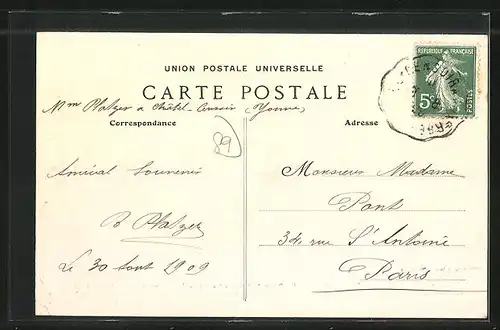 UNION POSTALE UNIVERSELLE
CARTE POSTALE
Mm Platzer à Châtel-Censoir (Yonne)
Correspondance
Adresse
REPUBLIQUE FRANÇAISE
5c
POSTES
89
Amical Souvenir
B Platzer
Le 30 Aout 1909
Monsieur Madame
Pont
34, rue St Antoine
Paris